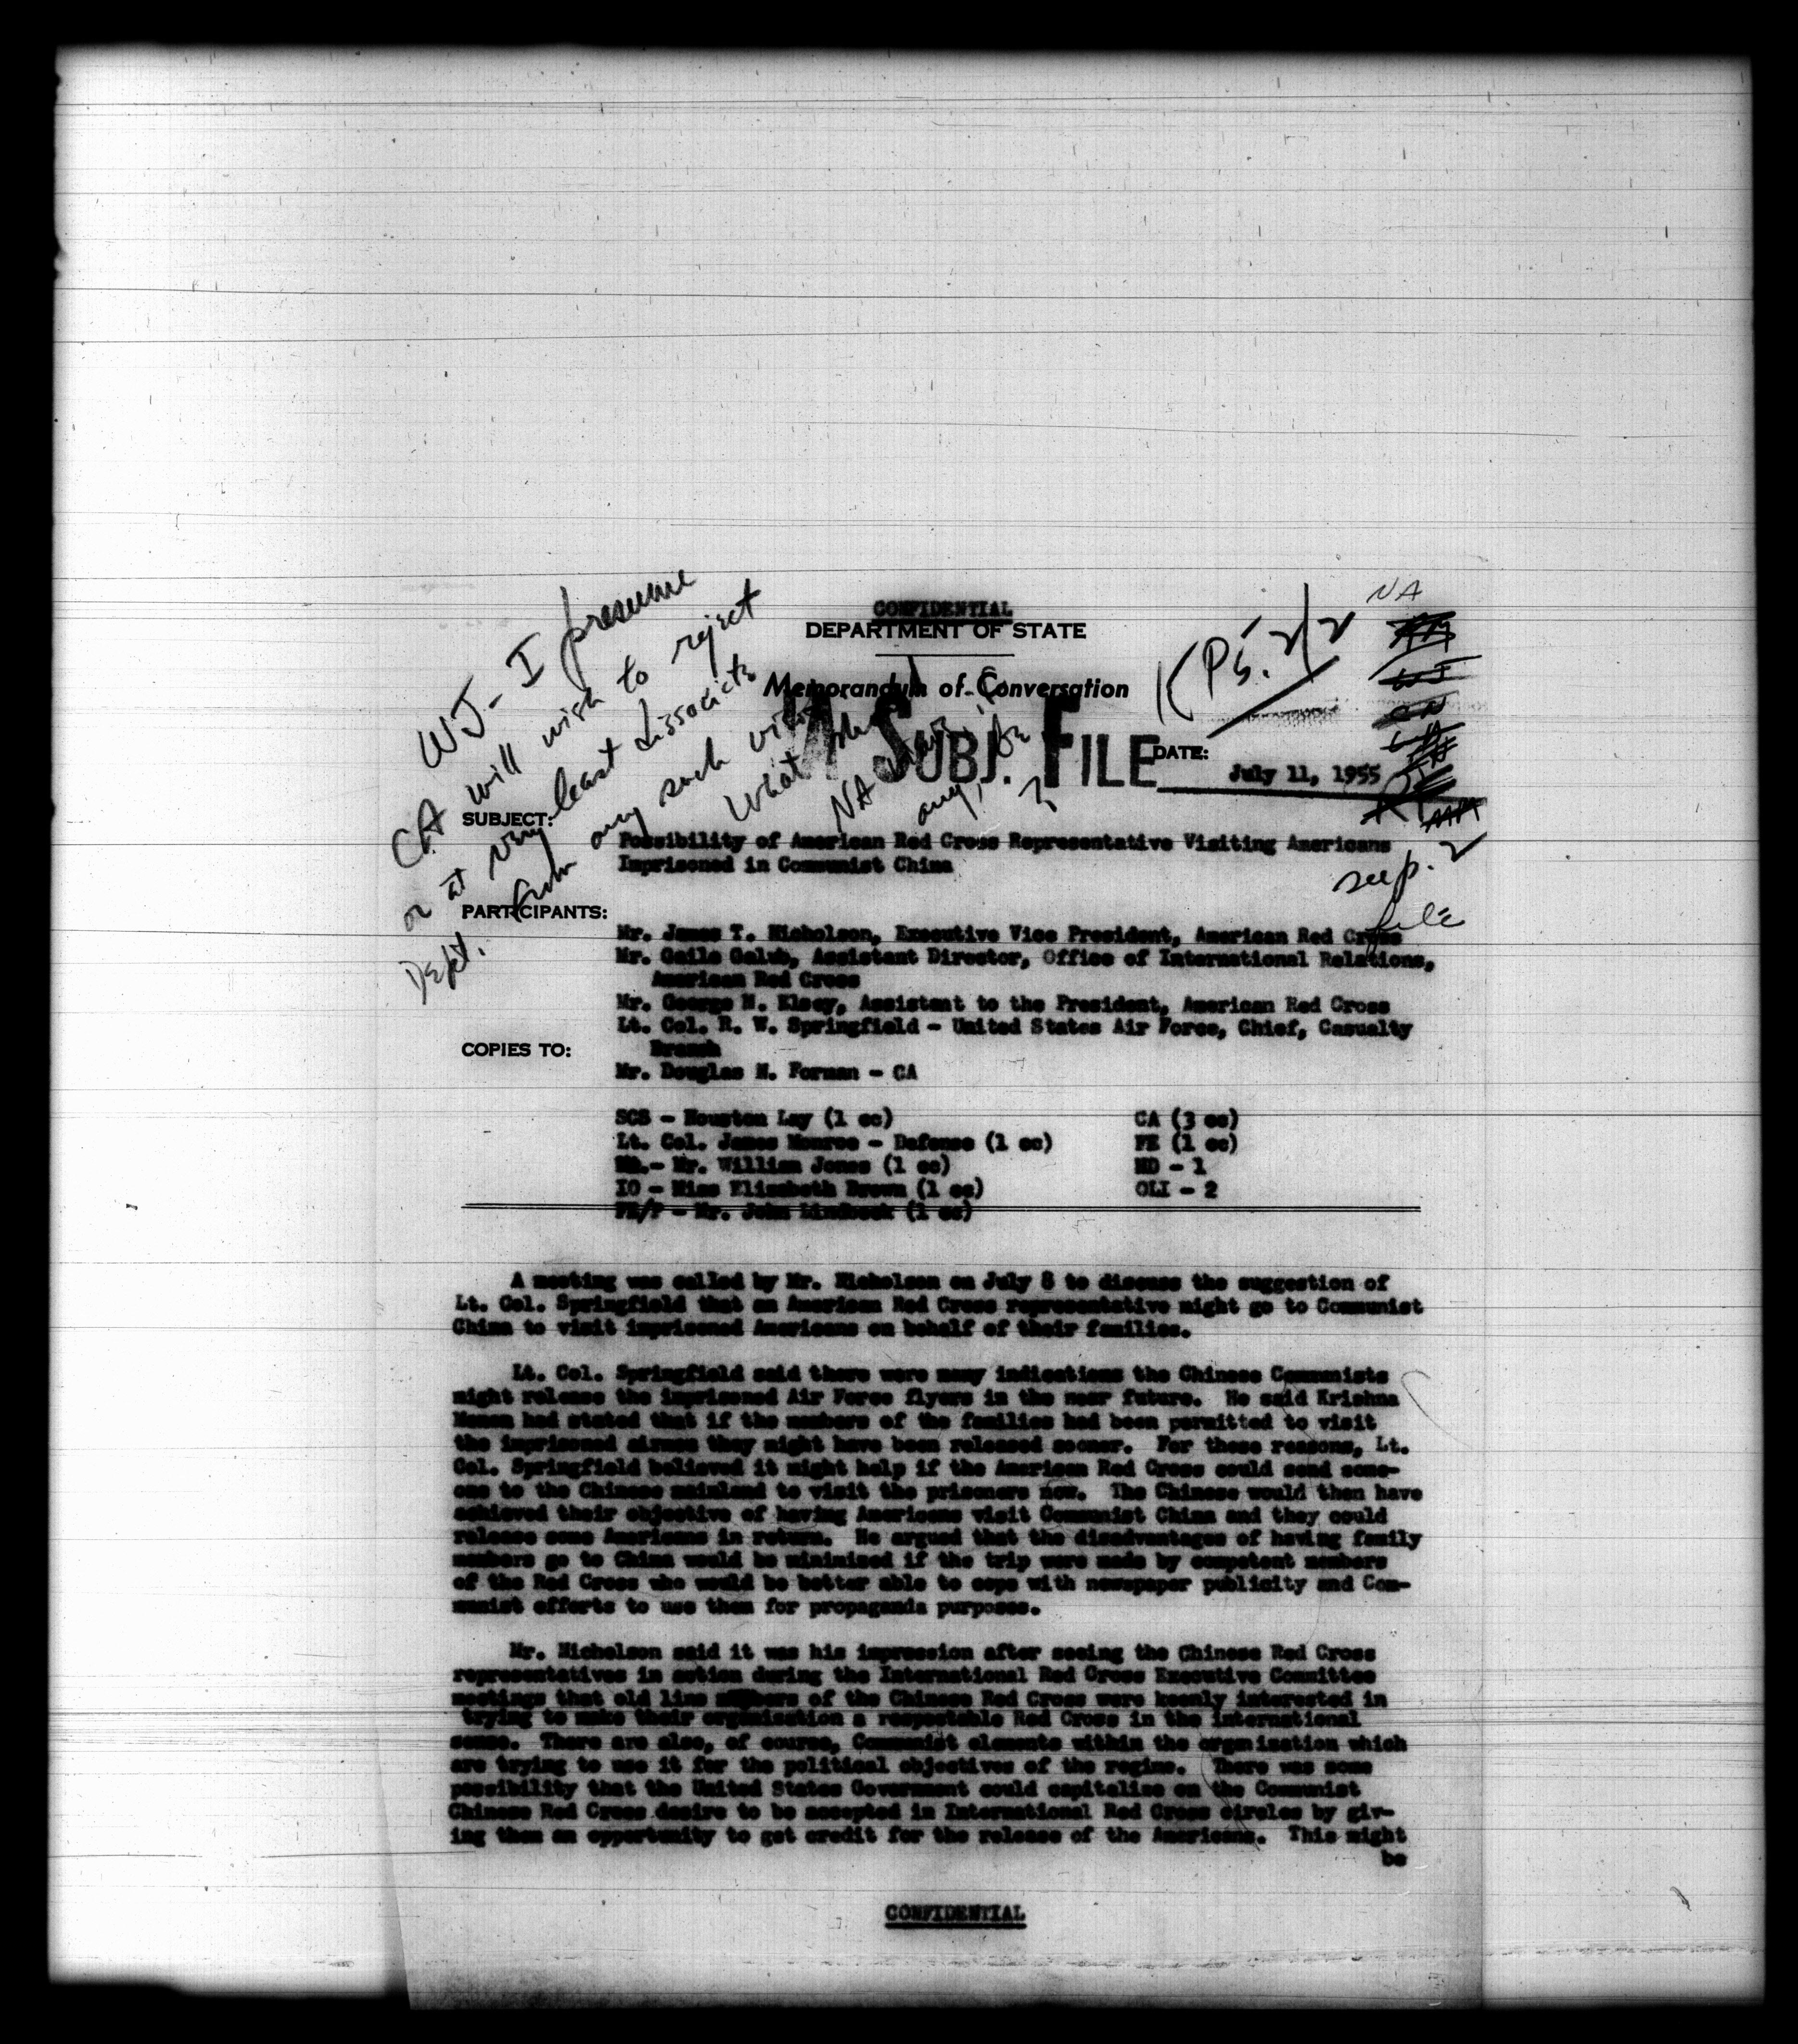 CONFIDENTIAL
DEPARTMENT OF STATE
Memorandum of Conversation
SUBJ. FILE
DATE: July 11, 1955
WJ - I presume
CA will wish to reject
or at very least dissociate
Dept. from any such visit
What
NA
any,
?
(PS. 2/2
NA
sup. 2
file
SUBJECT:
Possibility of American Red Cross Representative Visiting Americans
Imprisoned in Communist China
PARTICIPANTS:
Mr. James T. Nicholson, Executive Vice President, American Red Cross
Mr. Gaile Galub, Assistant Director, Office of International Relations,
American Red Cross
Mr. George M. Elsey, Assistant to the President, American Red Cross
Lt. Col. R. W. Springfield - United States Air Force, Chief, Casualty
Branch
Mr. Douglas N. Forman - CA
COPIES TO:
SCS - Houston Lay (1 cc) CA (3 cc)
Lt. Col. James Monroe - Defense (1 cc) FE (1 cc)
NA - Mr. William Jones (1 cc) - 1
IO - Miss Elizabeth Brown (1 cc) OLI - 2
FE/P - Mr. John Lindbeck (1 cc)
A meeting was called by Mr. Nicholson on July 8 to discuss the suggestion of
Lt. Col. Springfield that an American Red Cross representative might go to Communist
China to visit imprisoned Americans on behalf of their families.
Lt. Col. Springfield said there were many indications the Chinese Communists
might release the imprisoned Air Force flyers in the near future. He said Krishna
Menon had stated that if the members of the families had been permitted to visit
the imprisoned airmen they might have been released sooner. For these reasons, Lt.
Col. Springfield believed it might help if the American Red Cross could send some-
one to the Chinese mainland to visit the prisoners now. The Chinese would then have
achieved their objective of having Americans visit Communist China and they could
release some Americans in return. He argued that the disadvantages of having family
members go to China would be minimized if the trip were made by competent members
of the Red Cross who would be better able to cope with newspaper publicity and Com-
munist efforts to use them for propaganda purposes.
Mr. Nicholson said it was his impression after seeing the Chinese Red Cross
representatives in action during the International Red Cross Executive Committee
meetings that old line members of the Chinese Red Cross were keenly interested in
trying to make their organization a respectable Red Cross in the international
sense. There are also, of course, Communist elements within the organization which
are trying to use it for the political objectives of the regime. There was some
possibility that the United States Government could capitalize on the Communist
Chinese Red Cross desire to be accepted in International Red Cross circles by giv-
ing them an opportunity to get credit for the release of the Americans. This might
be
CONFIDENTIAL